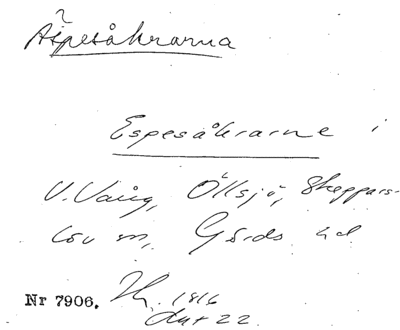 ?
Äspesåkrarna
Espesåkrarne i
V. Vång, Öllsjö, Skeppars-
löv sn, Gärds hd
Nr 7906. 1816
Akt 22.